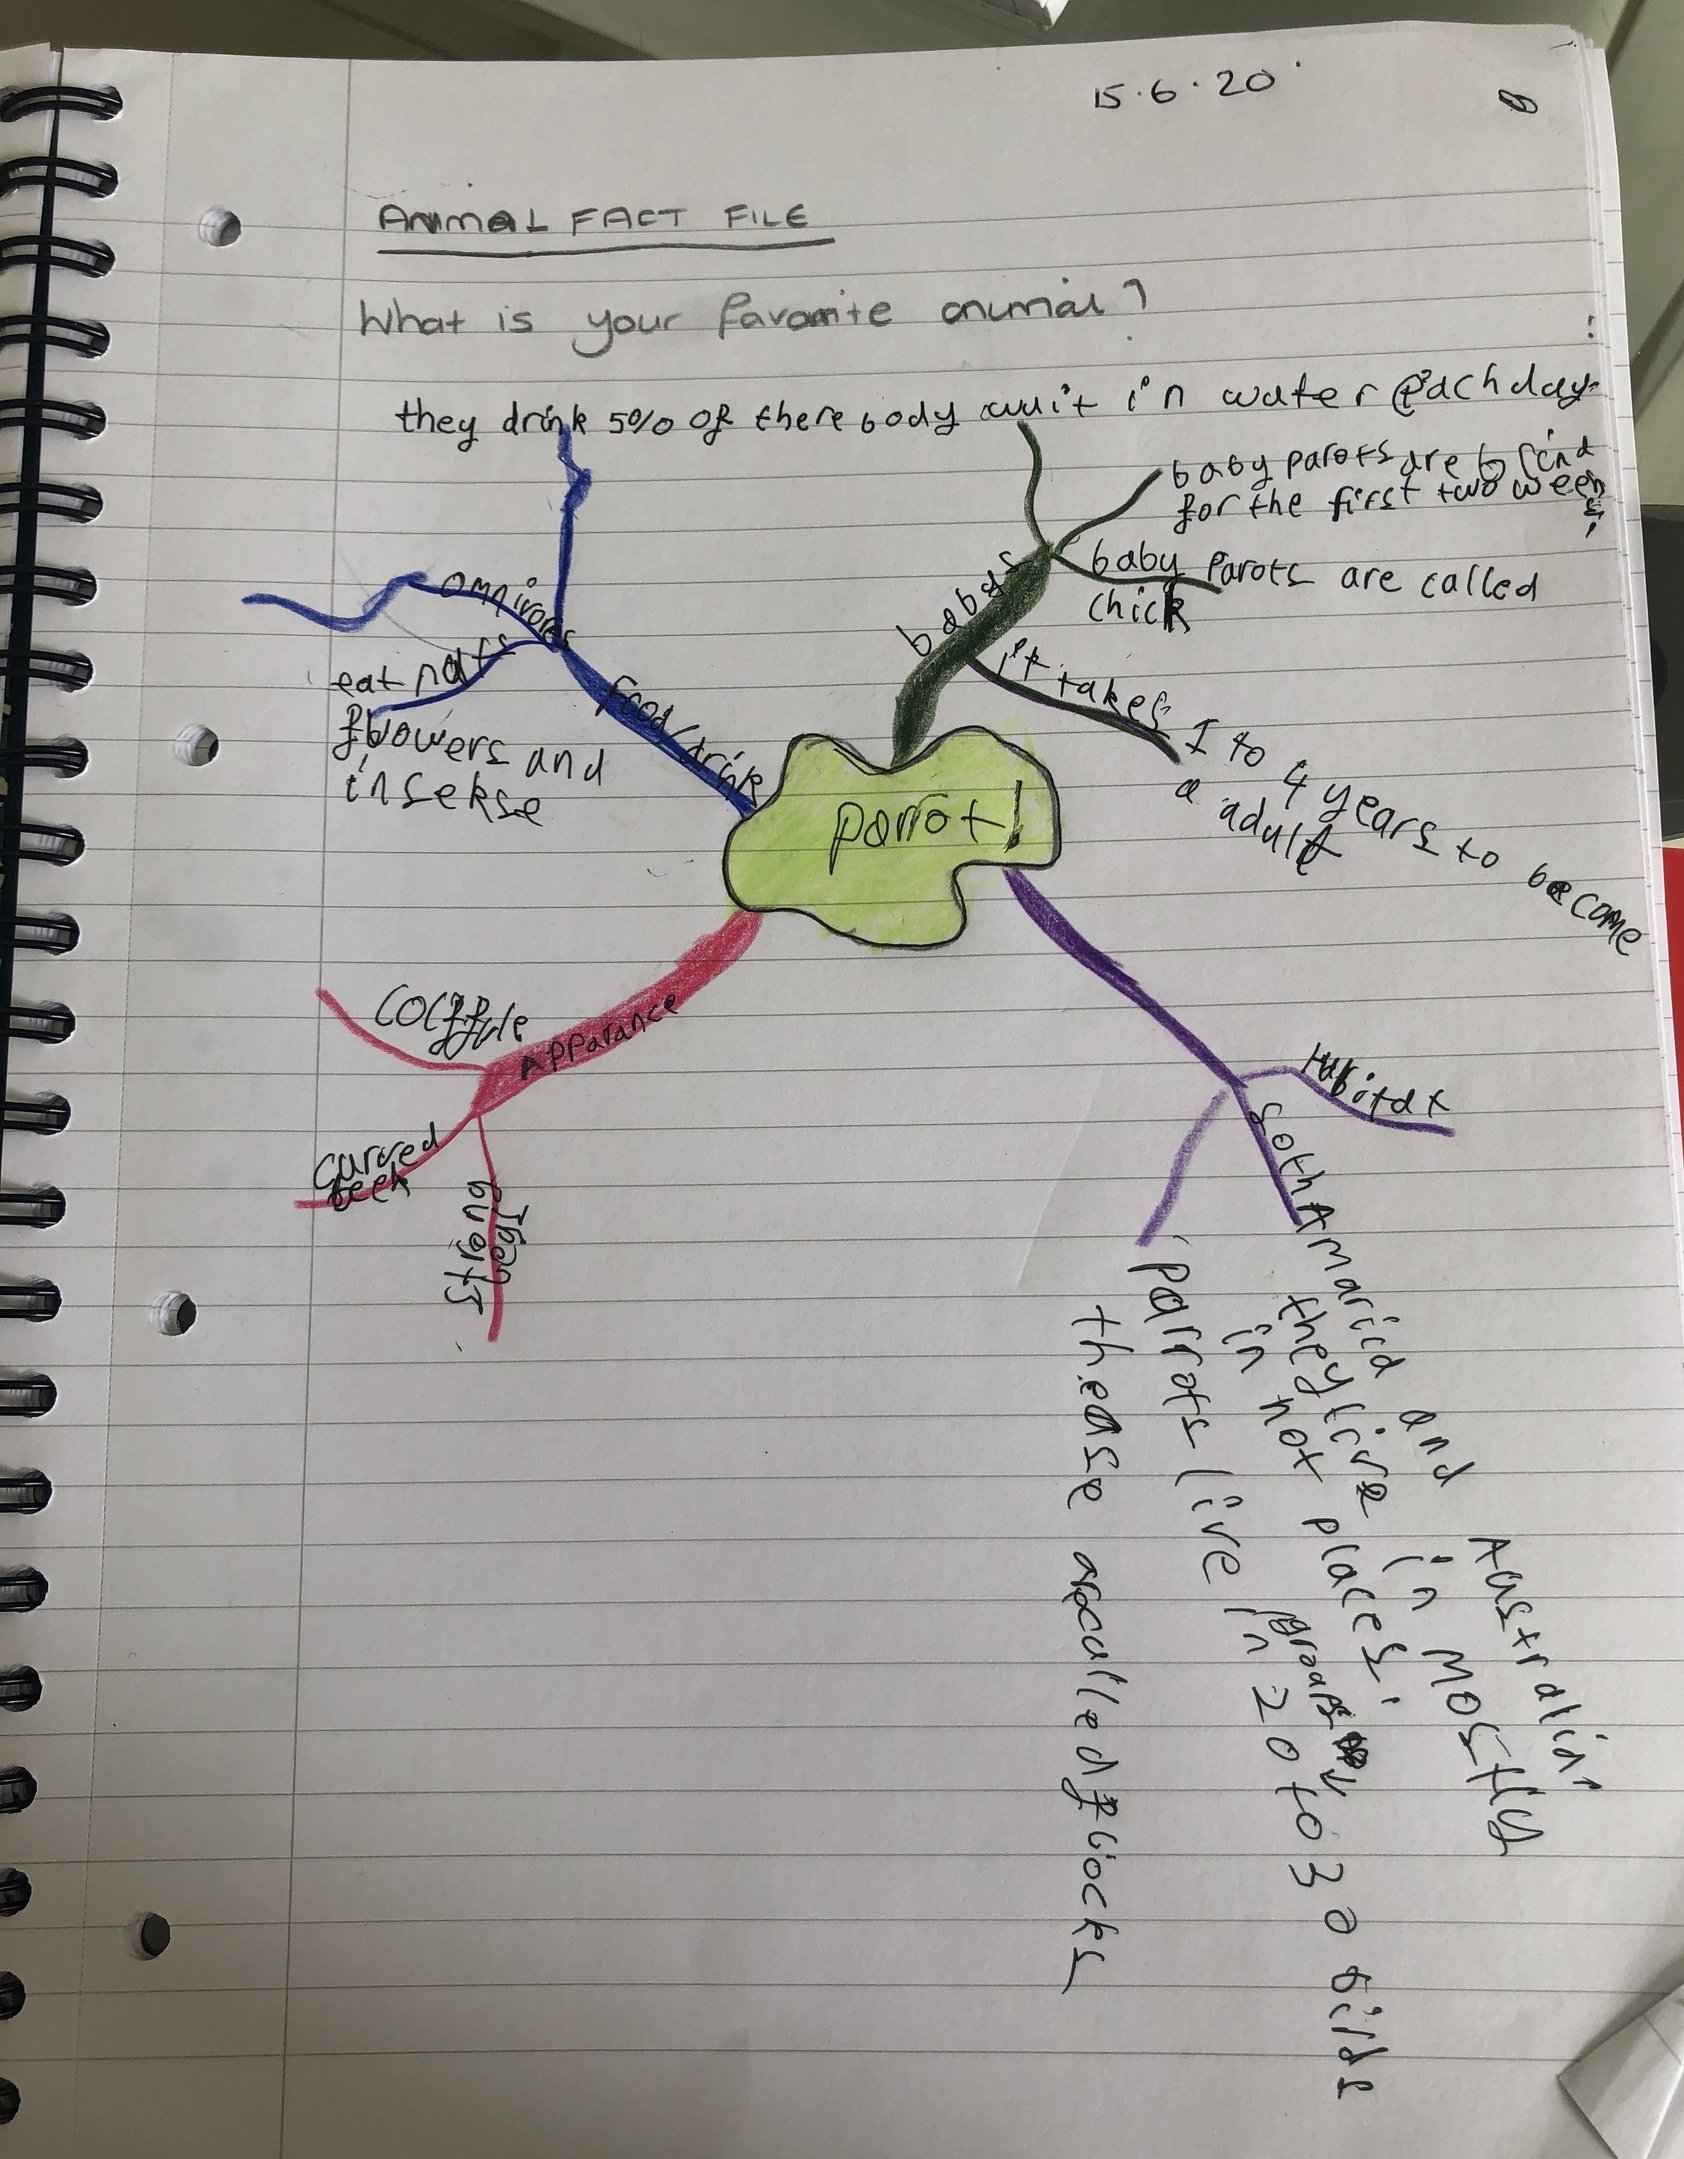 15.6.20
ANIMAL FACT FILE
What is your favorite animal?
they drink 5% of there body in water each day
baby parots are blind
for the first two weeks
baby parots are called
chick
babys
it takes 1 to 4 years to become
a adult
omnivores
eat nats
flowers and
insekse
Food/drink
parrot!
Apparance
curved
beek
strong
legs
Habitat
soth Amarica and Australia
they live in mostly
in hot places
parrots live in 20 to 30 birds
groups
thease are called flocks